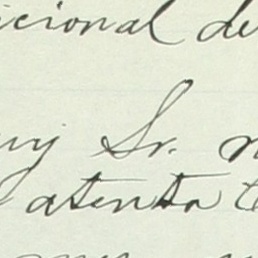 icional de
uy Sr. m
atenta C